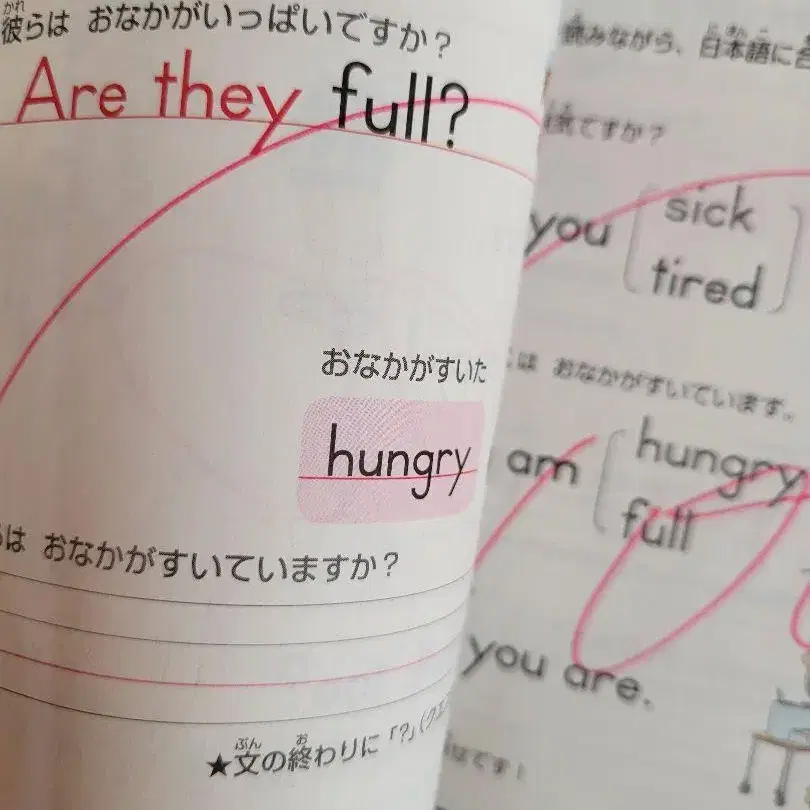 彼らは おなかがいっぱいですか？
かれ
Are they full?
おなかがすいた
hungry
は おなかがすいていますか？
★文の終わりに「？」（クエ
ぶん お
みながら、日本語に
ですか？
you sick
tired
は おなかがすいています。
am hungry
full
you are.
です！